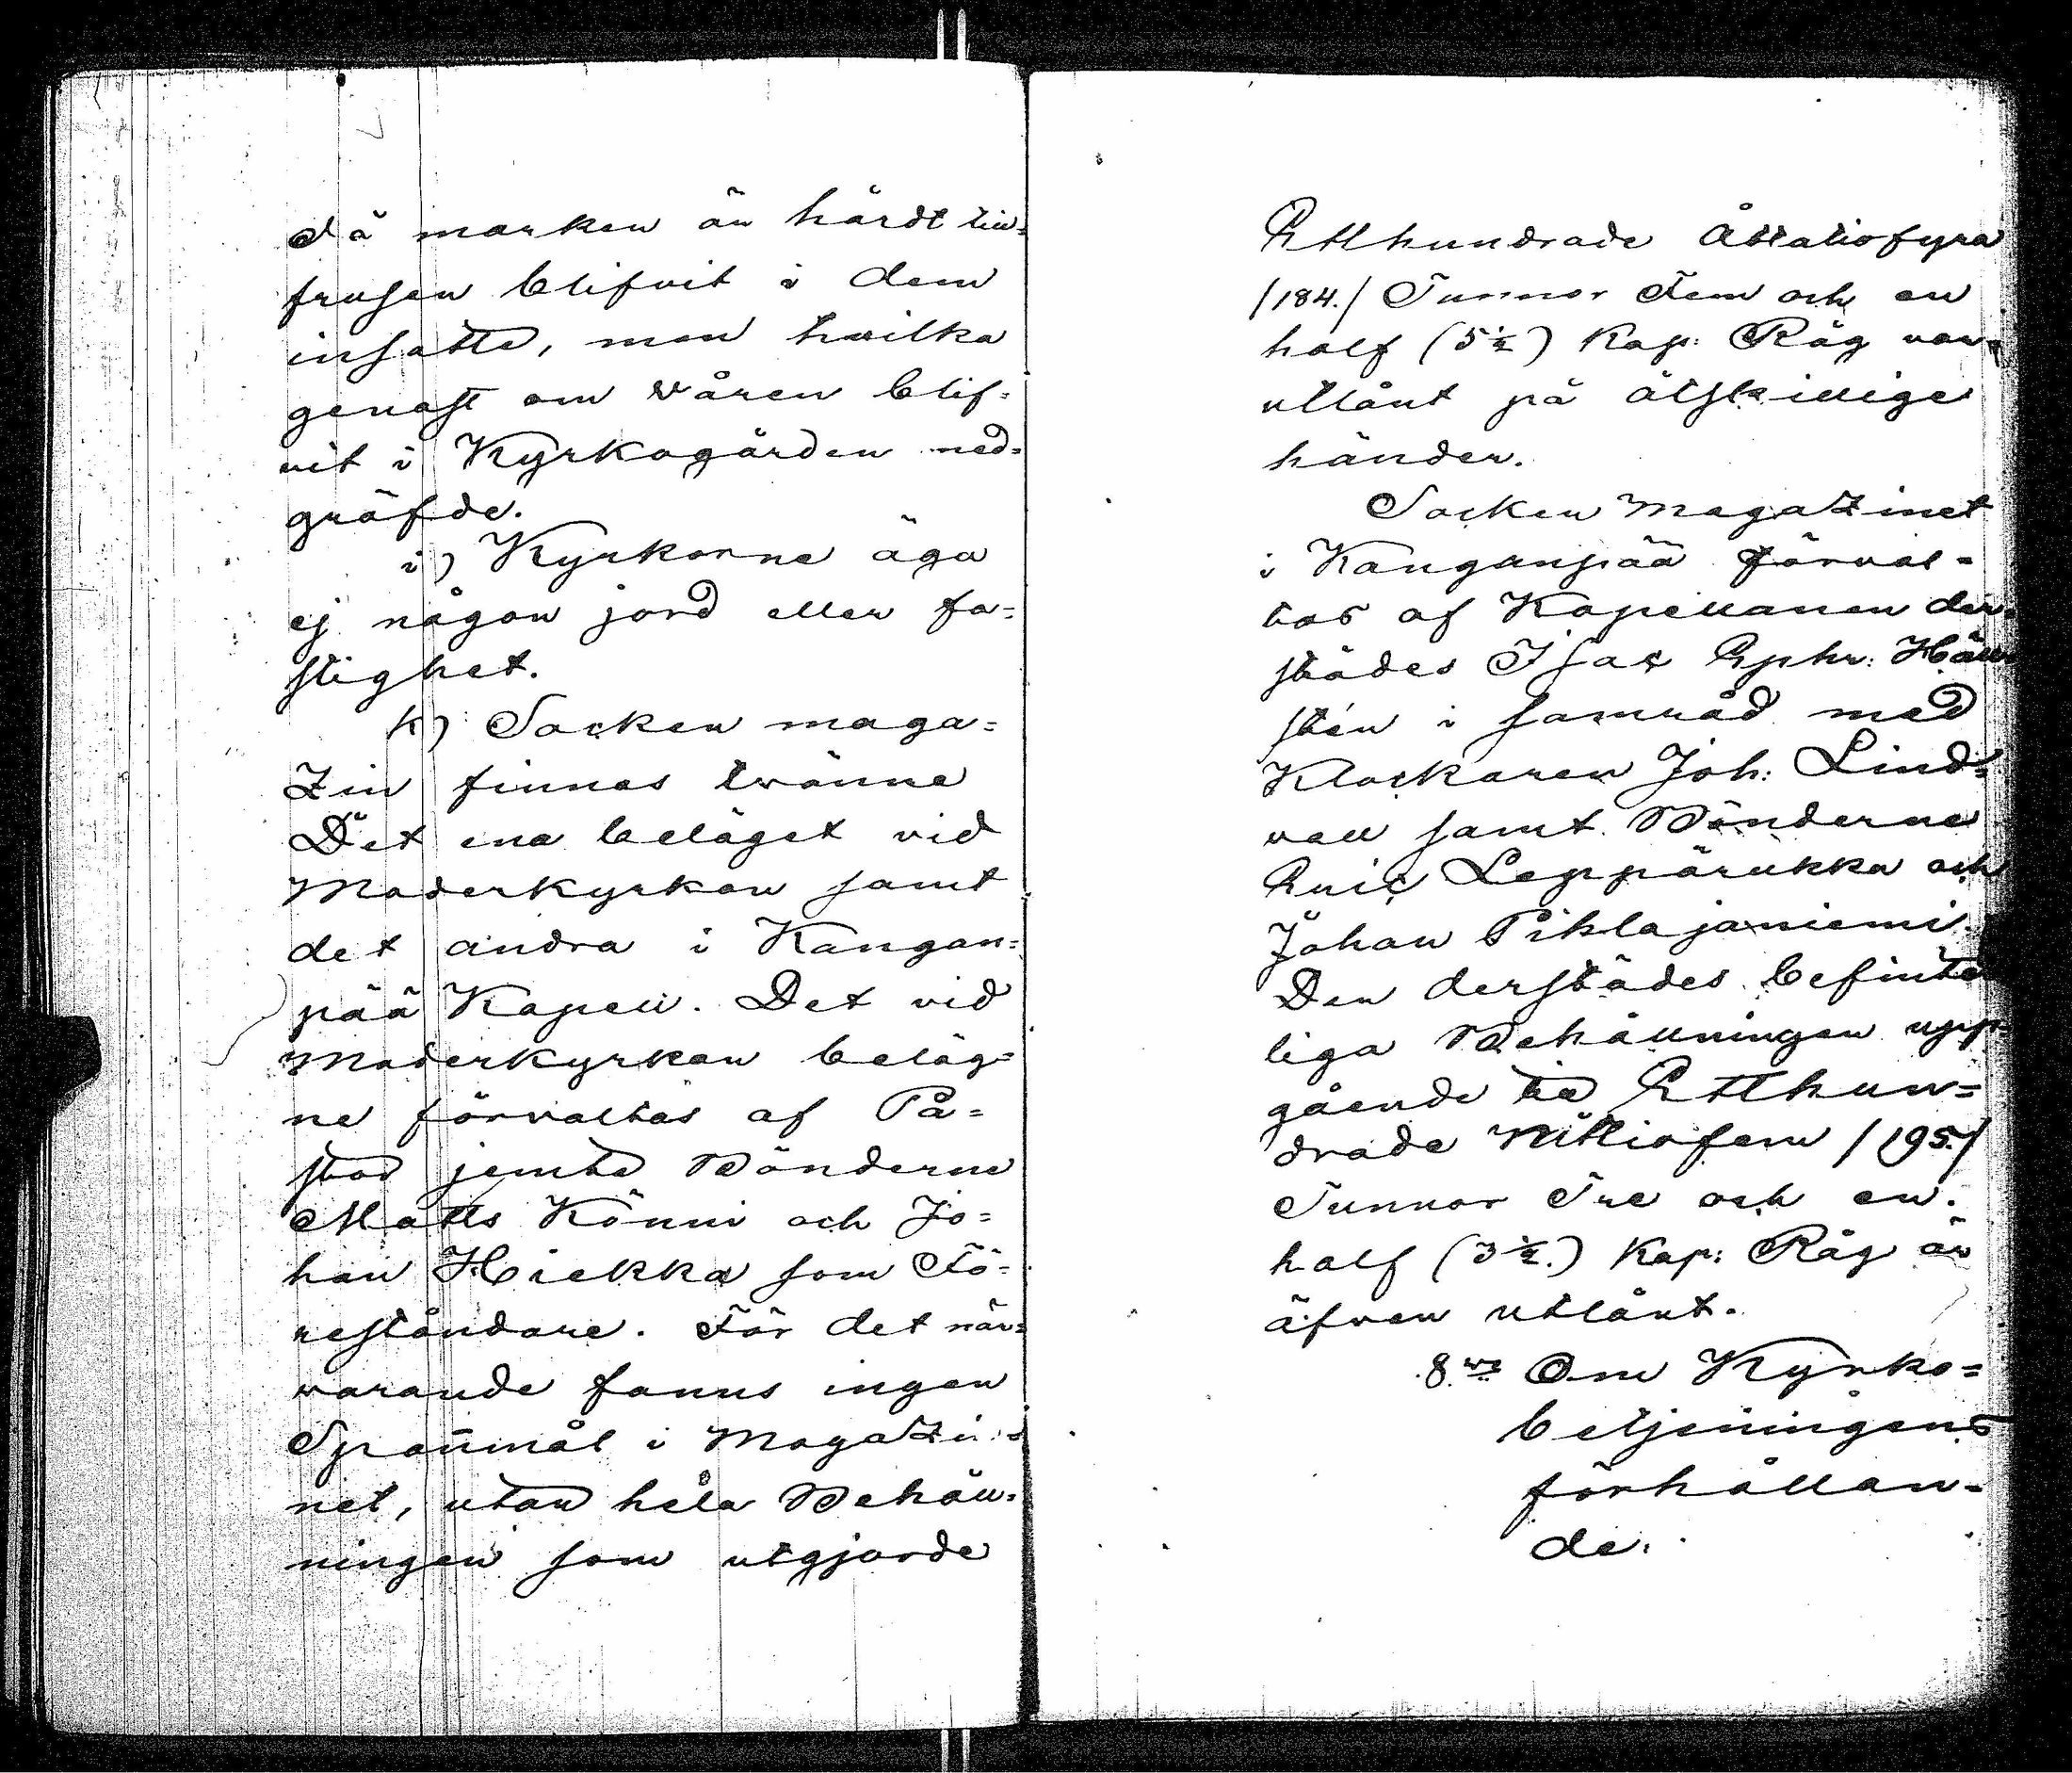 då marken är hårdt till=
frusen blifvit i dem
insatte, men hvilka
genast om våren blif=
vit i Kyrkogården ned=
gräfde.
i) Kyrkorne äga
ej någon jord eller fa=
stighet.
k) Socken maga=
Zin finnas tvänne
Det ena beläget vid
Moderkyrkan samt
det andra i Kangan=
pää Kapell. Det vid
Moderkyrkan beläg=
ne förvaltas af Pa=
stor jemte Bönderne
Matts Könni och Jo=
han Hiekka som Fö=
reståndare. För det när=
varande fanns ingen
Spanmål i Magazi=
net, utan hela Behåll=
ningen som utgjorde
Etthundrade Åttatiofyra
/184./ Tunnor Fem och en
half (5½) Kap: Råg var
utlånt på åtskillige
händer.
Socken Magazinet
i Kanganpää förval=
tas af Kapellanen der=
städes Isac Ephr: Häll=
stén i samråd med
Klockaren Joh: Lind=
vall samt Bönderne
Eric Leppärukka och
Johan Pihlajaniemi.
Den derstädes befint=
liga Behållningen upp=
gående till Etthun=
drade Nittiofem /195./
Tunnor Tre och en
half (3½.) Kap: Råg är
äfven utlånt.
8:vo Om Kyrko=
betjeningens
förhållan=
de.